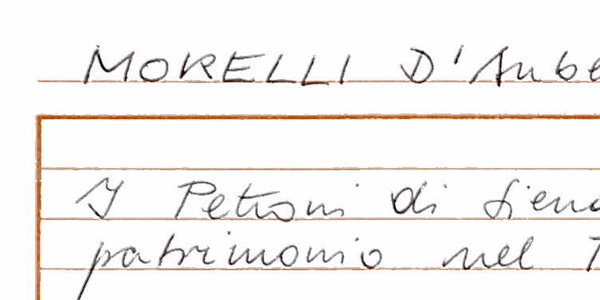 MORELLI D'Aube
I Petroni di Siena
patrimonio nel T